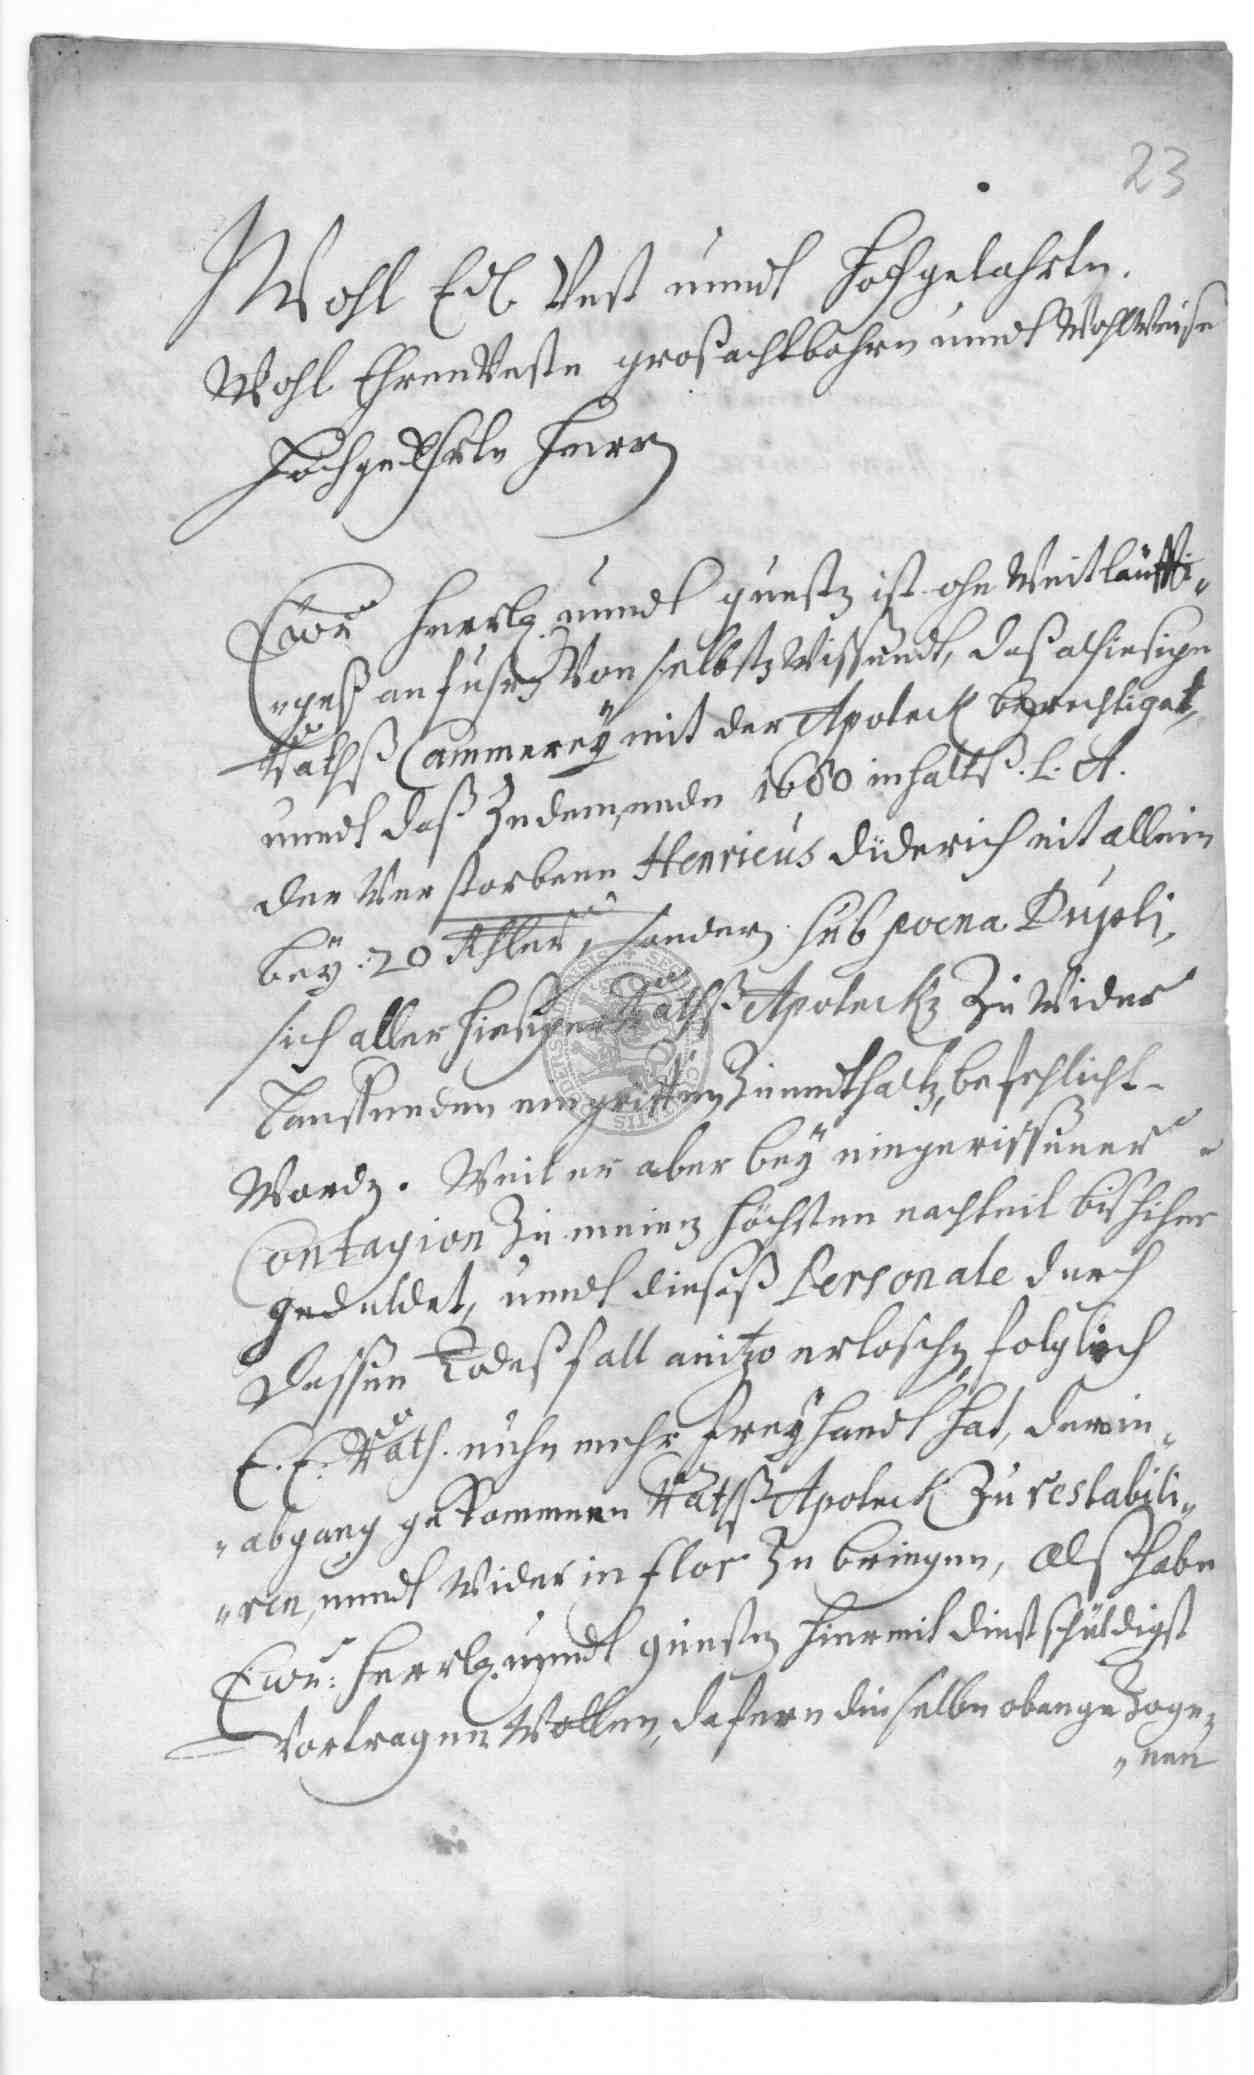 23
Wohl Edl Vest unndt Hochgelahrte.
Wohl EhrenVeste großachtbahre unndt WohlWeise
Hochgeehrte Herrn
Ewer Herrl. unndt gunsten ist ohn Weitläuffi„
„geß anfuhren Von selbsten Wissendt, daß alhiesige
Rathß Cammereÿ mit der Apoteck berechtiget,
unndt daß Zu dem ende 1680 inhaltß L: A.
der Verstorbene Henricus diderich nit allein
beÿ 20 Rthler, sondern sub poena Dupli,
sich aller hiesiger Rathß Apotecken Zu Wider
lauffenden eingriffen Zu endthalten, befehlicht
Worden. Weil er aber beÿ eingerissener
Contagion Zu meinen höchsten nachteil bishiher
geduldet, unndt dieseß Personale durch
dessen Todeßfall anitzo erloschen folglich
E. E. Rath nuhn mehr freÿ handt hat, der in„
„abgang gekommenen Rathß Apoteck Zu restabili„
„ren, unndt Wider in flor Zu bringen, Alß habe
Ewer: Herrl. unndt gunsten hiermit dinstschuldigst
Vortragen Wollen, dafern dieselbe obangeZoge„
„nen